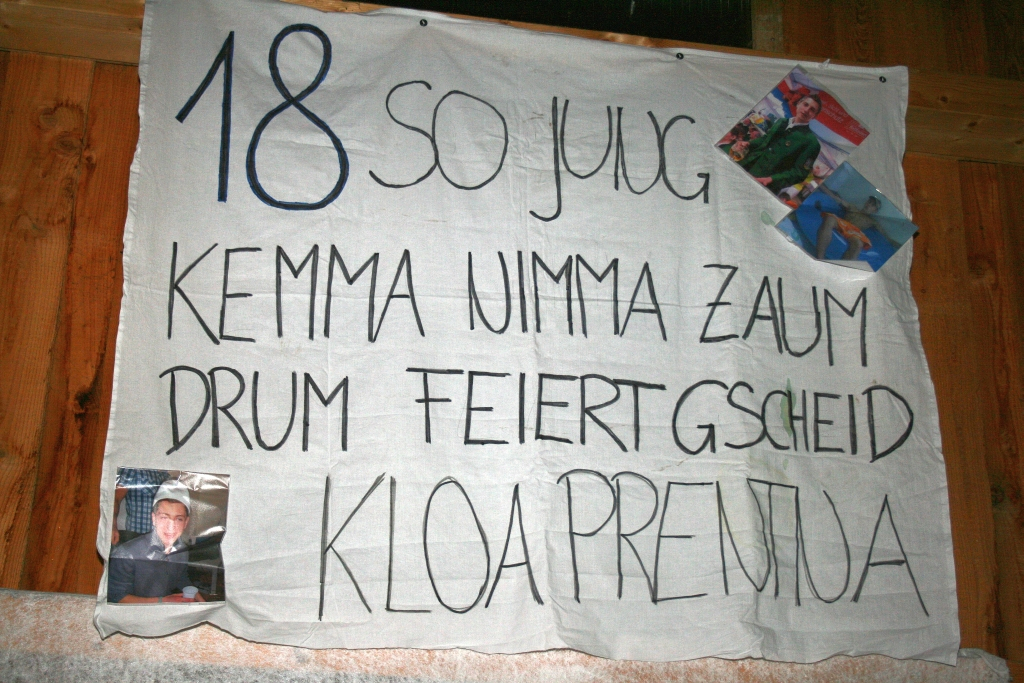 18 SO JUNG
KEMMA NIMMA ZAUM
DRUM FEIERT GSCHEID
KLOA PRENTNA